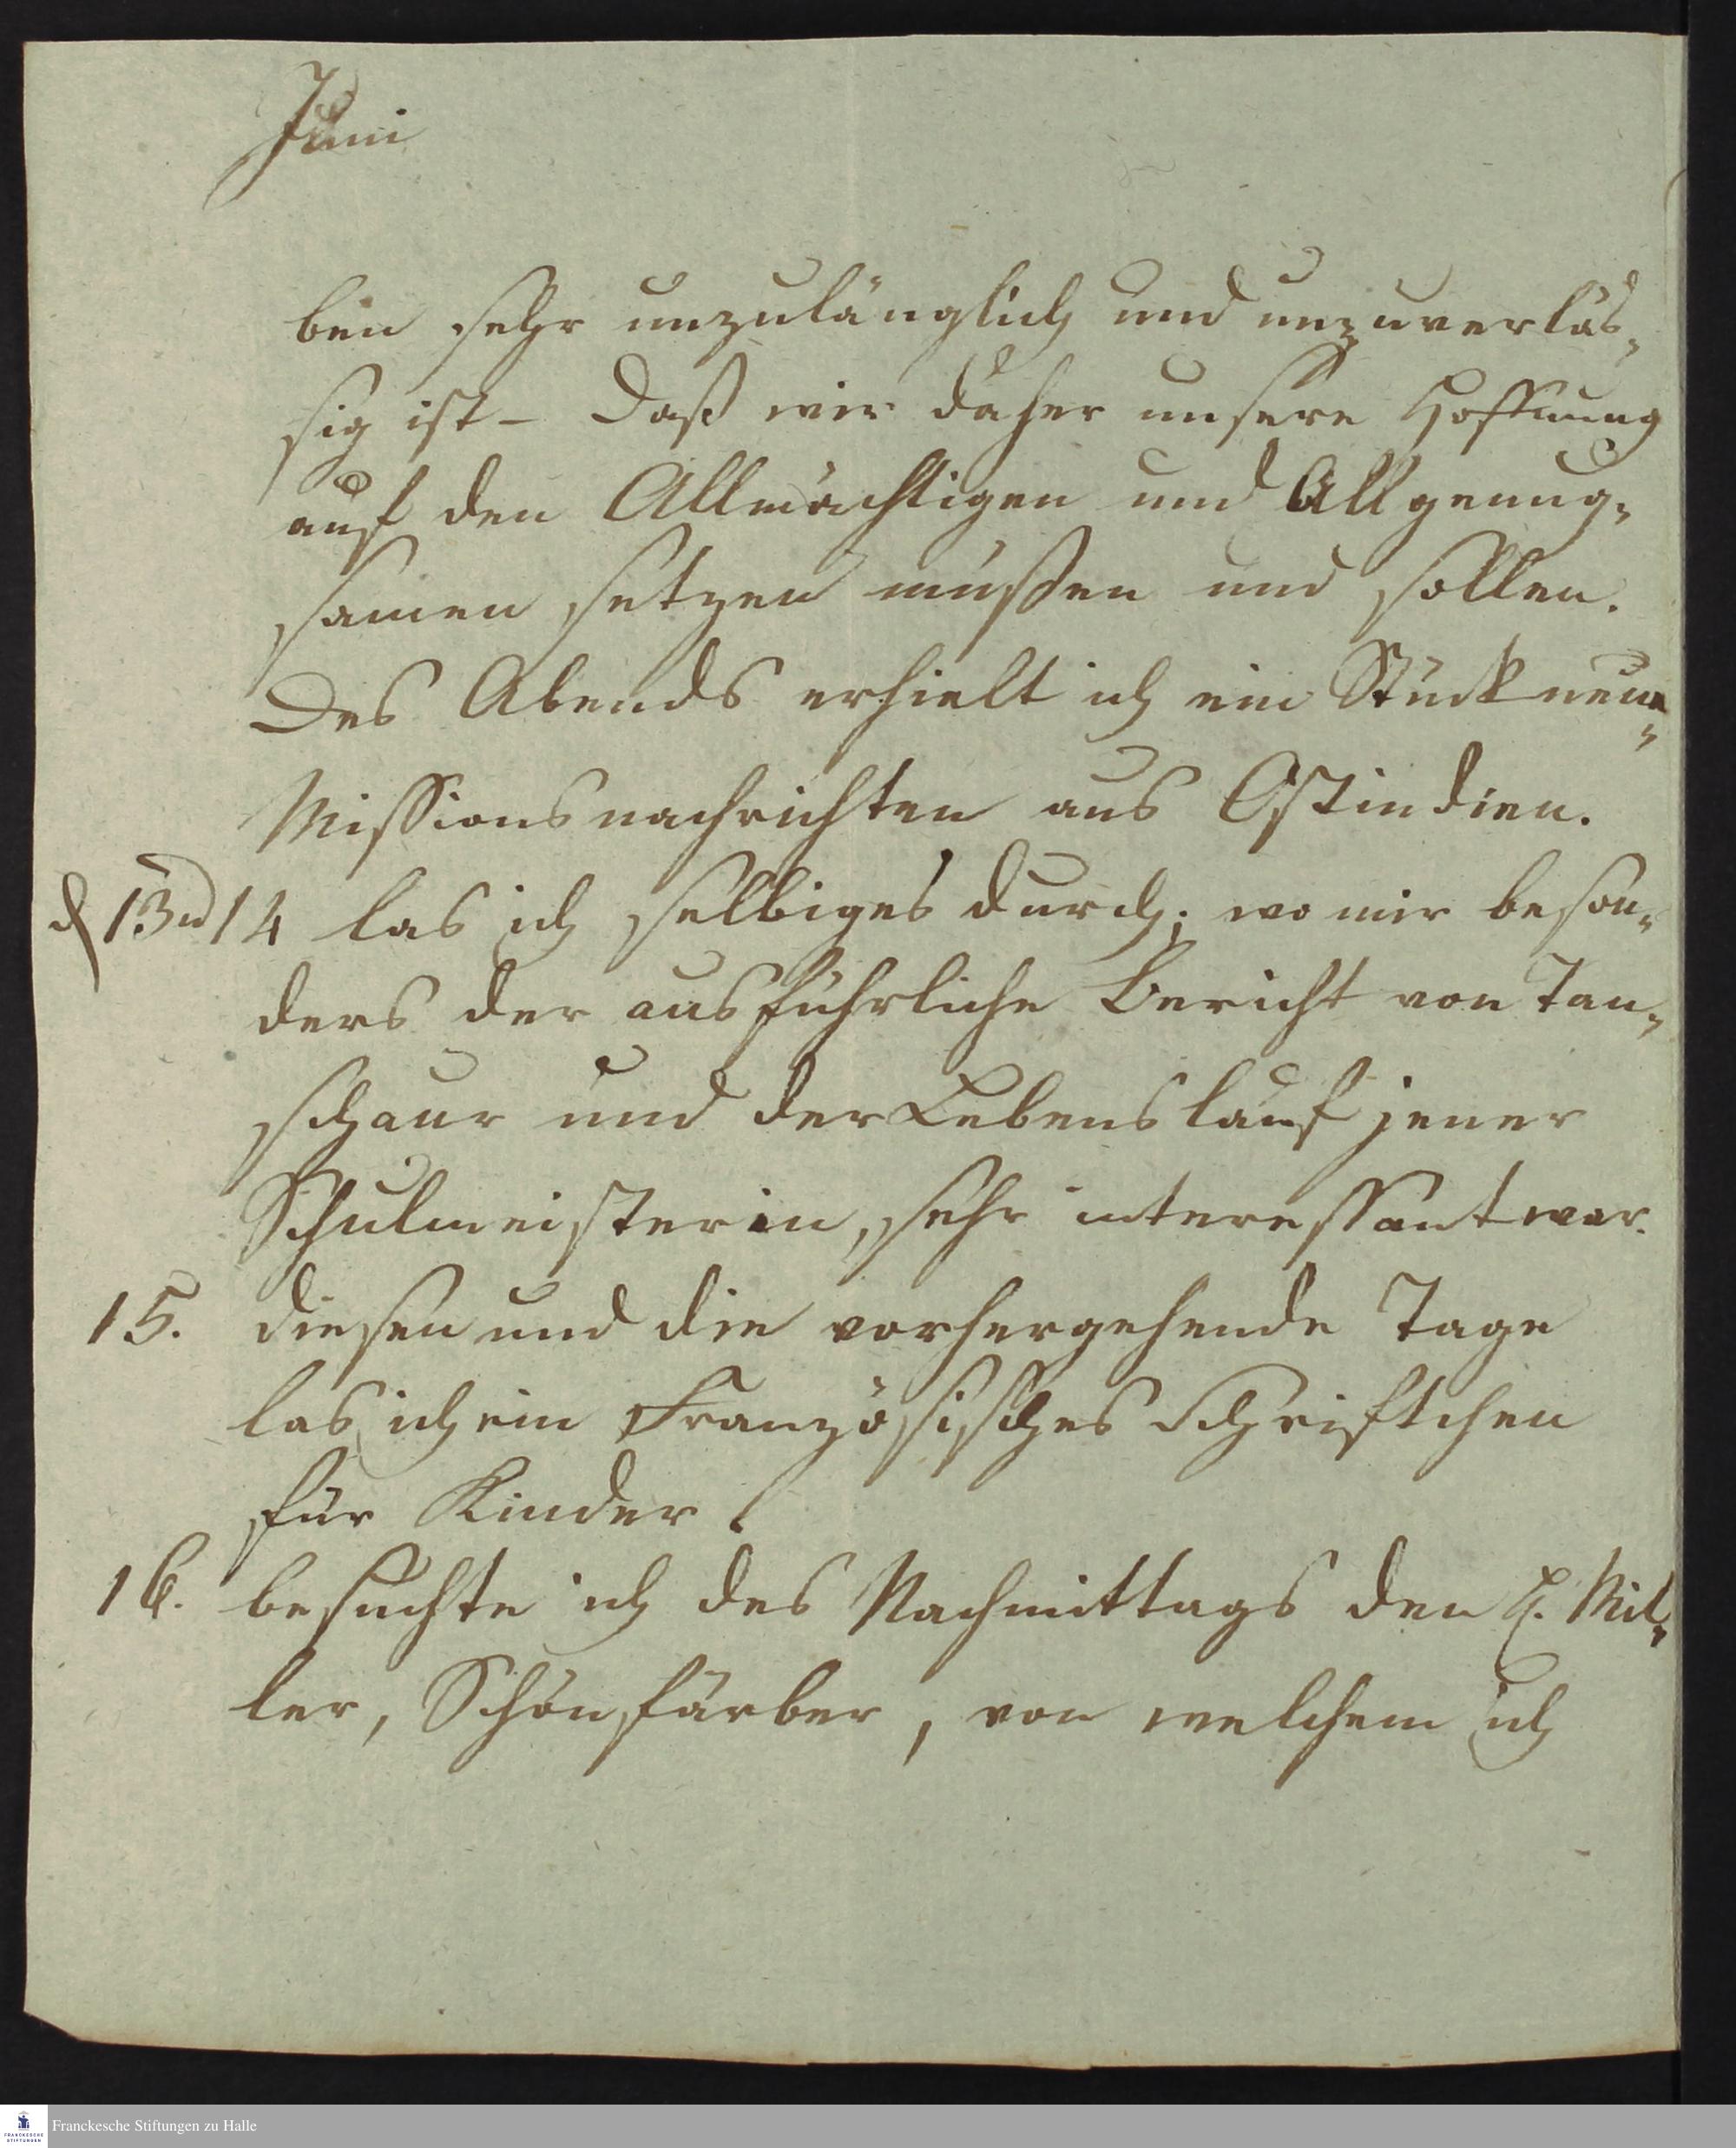 Juni
ben sehr unzulänglich und unzuverläs-
sig ist – Daß wir daher unsere Hoffnung
auf den Allmächtigen und Allgenug-
samen setzen müßen und sollen.
Des Abends erhielt ich ein Stück neue
Missionsnachrichten aus Ostindien.
d 13 u 14 las ich selbiges durch; wo mir beson-
ders der ausführliche Bericht von Tan-
schaur und der Lebenslauf jener
Schulmeisterin, sehr interessant war.
15. diesen und die vorhergehende Tage
las ich ein Französisches Schriftchen
für Kinder.
16. besuchte ich des Nachmittags den H. Mil-
ler, Schönfärber, von welchem ich
FRANCKESCHE STIFTUNGEN
Franckesche Stiftungen zu Halle